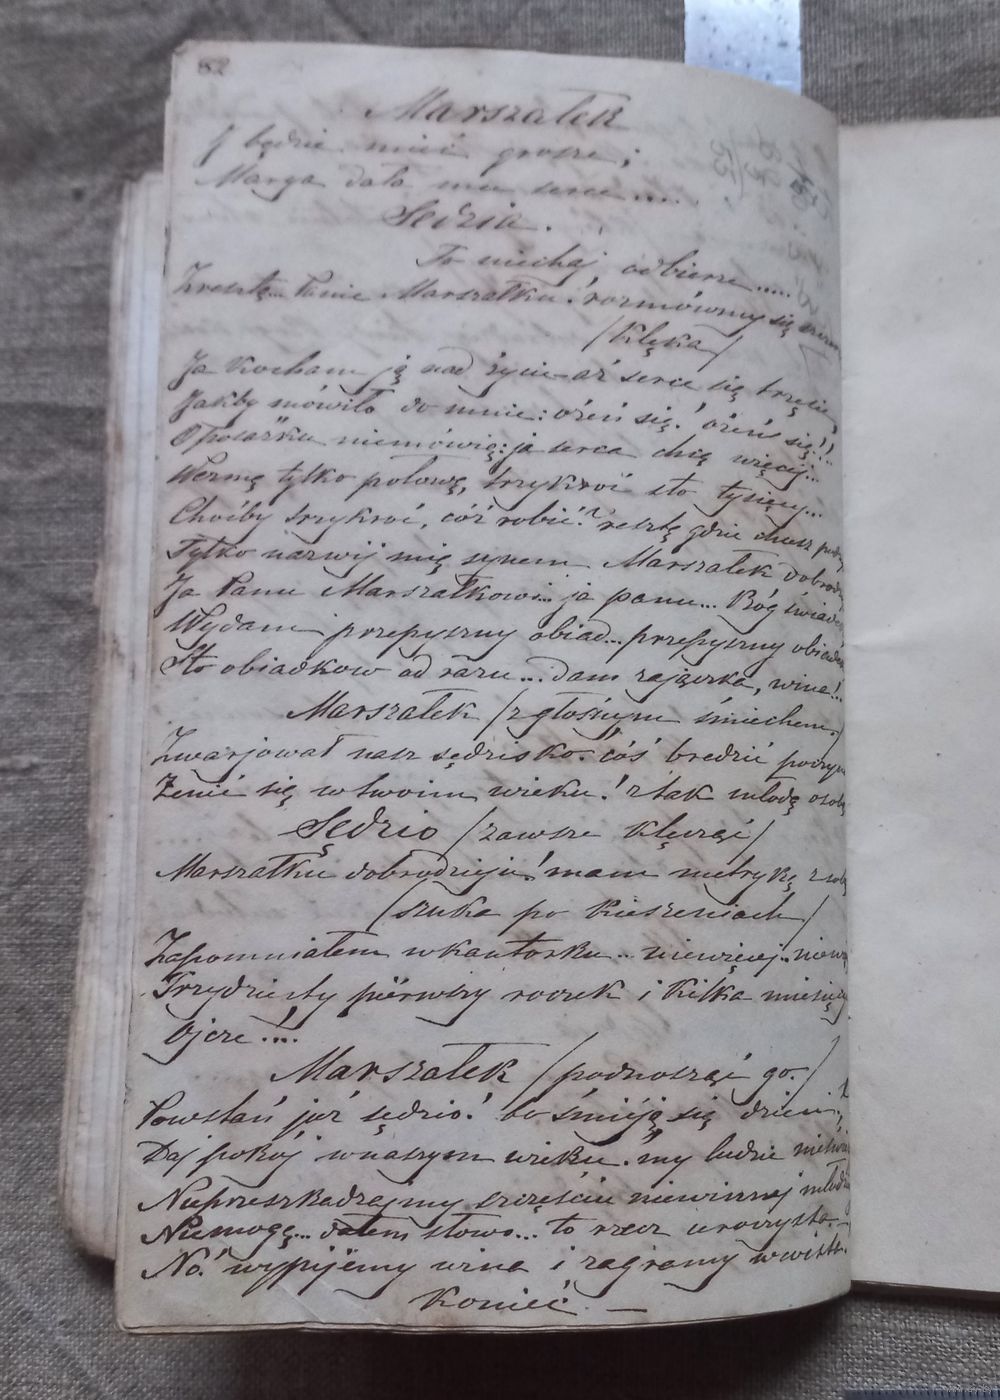 82
Marszałek
I będzie mieć grosze;
Marya dała mu serce....
Sędzia.
To niechaj odbierze.....
Zresztą... Panie Marszałku! rozmówmy się
/klęka/
Ja kocham ją nad życie aż serce się trzęsie,
Jakby mówiło do mnie: ożeń się! ożeń się!!
O posażku niemówię: ja serca chcę więcej...
Wezmę tylko połowę, trzykroć sto tysięcy...
Choćby trzykroć, cóż robić? resztę gdzie chcesz
Tylko nazwij mię synem Marszałek
Ja Panu Marszałkowi... ja panu... Bóg
Wydam przepyszny obiad... przepyszny
Sto obiadkow od razu... dam zajączka, wina!..
Marszałek /z głośnym śmiechem./
Zwarjował nasz sędzisko. cóś bredzić
Żenić się w twoim wieku! z tak młodą osobą
Sędzio /zawsze klęcząć/
Marszałku dobrodzieju! mam metrykę z sobą
/szuka po kieszeniach/
Zapomniałem w kantorku.. niewięcej..
Trzydziesty pierwszy roczek i kilka miesięcy
Ojcze....
Marszałek /podnosząć go./
Powstań już sędzio! bo śmieją się dzieci,
Daj pokój w naszym wieku. my ludzie
Nieprzeszkadzajmy szczęściu niewinnej
Niemogę... dałem słowo... to rzecz uroczysta.—
No! wypijemy wina i zagramy w wista.
Konieć. —